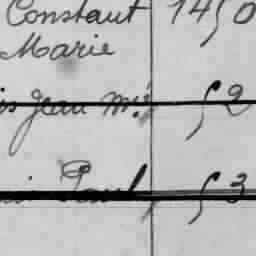 Constant 1450
Marie
is Jean Mie 52
Paul 53